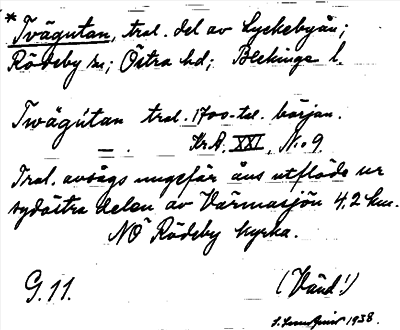 * Tvägutan, tral. del av Lyckebyån;
Rödeby sn; Östra hd; Blekinge l.
Twägútan tral. 1700-tal. början.
Kr.A. XXI, No 9.
Tral. avsågs ungefär åns utflöde ur
sydöstra delen av Värmasjön 4,2 km.
NÖ Rödeby kyrka.
G. 11.
(Vänd!)
1938.